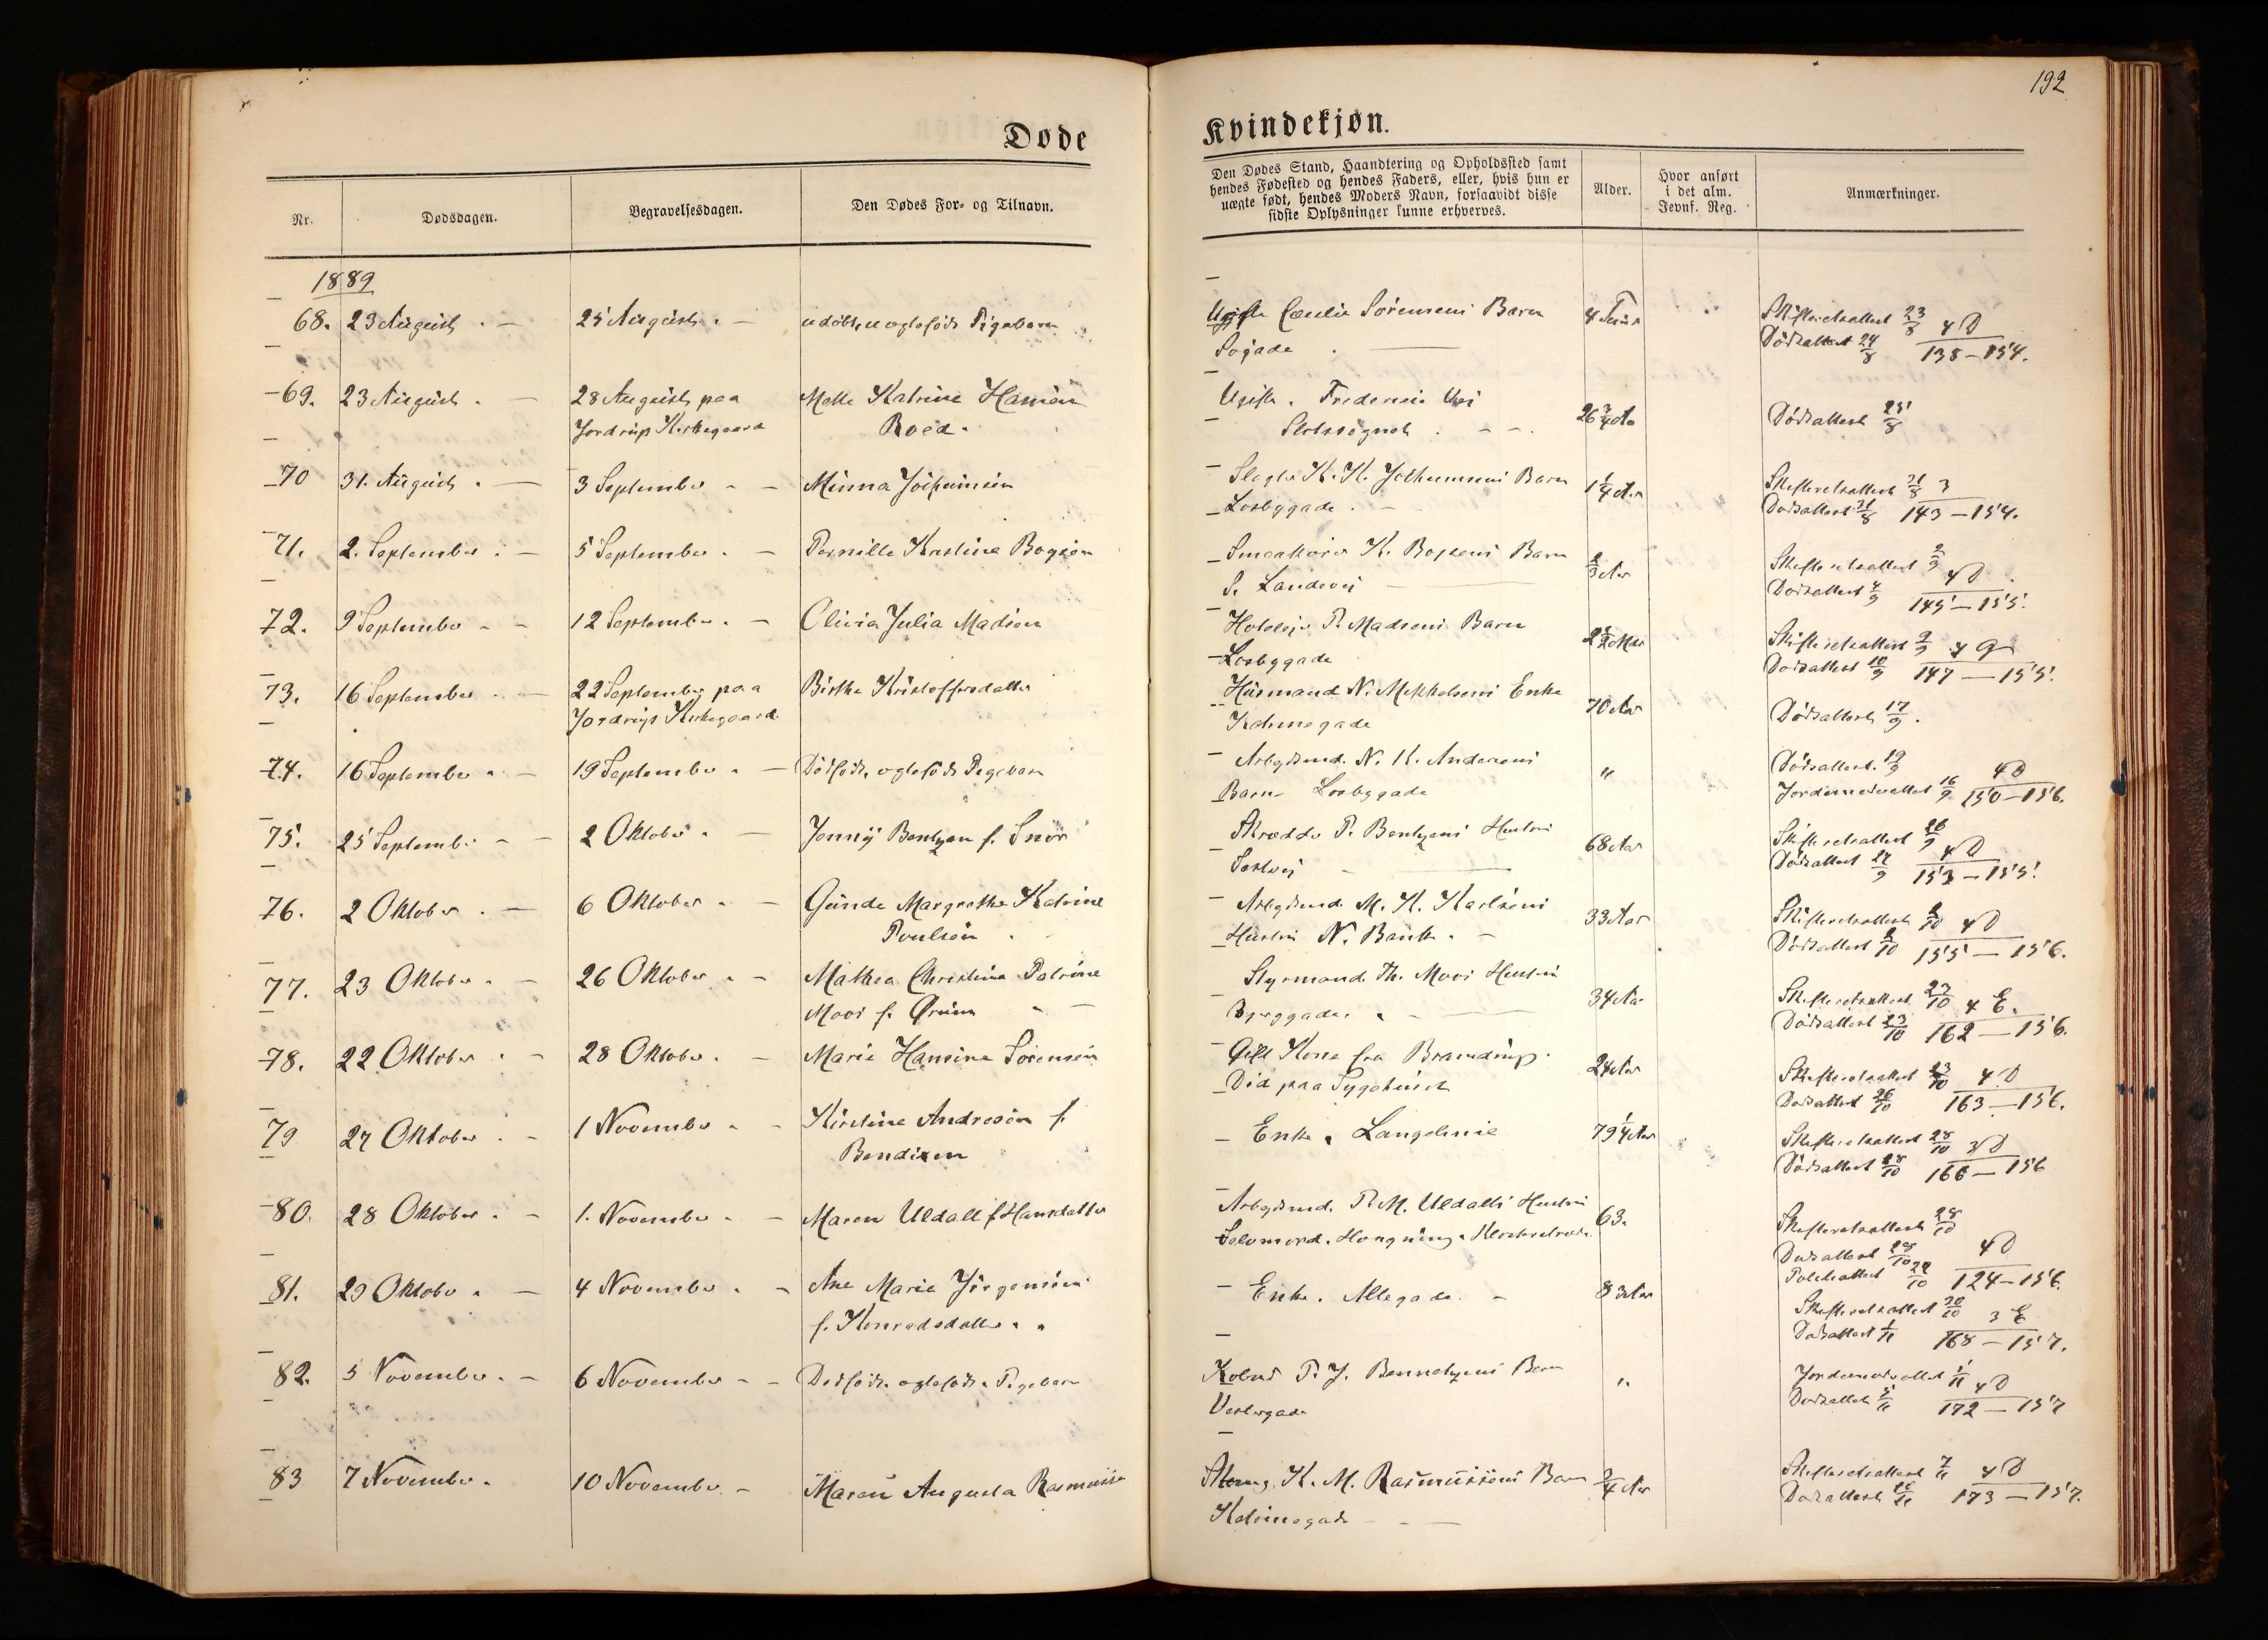 192
Døde
Kvindekjøn.
Nr.
Dødsdagen.
Begravelsesdagen.
Den Dødes For- og Tilnavn.
Den Dødes Stand, Haandtering og Opholdssted samt
hendes Fødested og hendes Faders, eller, hvis hun er
uægte født, hendes Moders Navn, forsaavidt disse
sidste Oplysninger kunne erhverves.
Alder.
Hvor anført
i det alm.
Jevnf. Reg.
Anmærkninger.
1889
68. 23 August 25 August udøbt, uægtefødt Pigebarn Ugifte Cecilie Sørensens Barn 4 Skifteretsattest 23/8 4 D
Søgade Dødsattest 24/8 138-154.
69. 23 August 28 August paa Mette Katrine Hansen Ugift. Fredericia Vei 26 3/4 Aar Dødsattest 25/8
Jordrup Kirkegaard Roed. Slotssognet
70 31. August 3 September Minna Jochumsen Slagter K. K. Jochumsens Barn 1 1/4 Aar Skifteretsattest 31/8 3
Laasbygade Dødsattest 31/8 143-154.
71. 2. September 5 September Pernille Kirstine Bogsen K. Bogsens Barn Aar Skifteretsattest 2/9 4 D
S. Landevej Dødsattest 4/9 145-155.
72. 9 September 12 September Olivia Julia Madsen P. Madsens Barn 2 1/2 Skifteretsattest 9/9 4 G
Laasbygade Dødsattest 10/9 147-155.
73. 16 September 22 September paa Birthe Kristoffersdatter Husmand N. Mikkelsens Enke 70 Aar Dødsattest 17/9.
Jordrup Kirkegaard Katrinegade
74. 16 September 19 September Dødfødt, ægtefødt Pigebarn Arbejdsmd. N. K. Andersens " Dødsattest 19/9 4 D
Barn Laasbygade Jordemoderattest 16/9 150-156.
75. 25 September 2 Oktober Jenny Bentzen f. Snor Skrædder P. Bentzens Hustru 68 Aar Skifteretsattest 26/9 4 D
Dødsattest 27/9 153-155.
76. 2 Oktober 6 Oktober Gunde Margrethe Katrine Arbejdsmd. M. K. Karlsens 33 Aar Skifteretsattest 2/10 4 D
Poulsen Hustru N. Bank. Dødsattest 2/10 155-156.
77. 23 Oktober 26 Oktober Mathea Christine Patrine Styrmand Th. Moos Hustru 34 Aar Skifteretsattest 23/10 4 E.
Moos f. Ørum Bjerggade. Dødsattest 23/10 162-156.
78. 22 Oktober 28 Oktober Marie Hansine Sørensen Gift Kone fra Bramdrup. 24 Aar Skifteretsattest 23/10 4 D
Død paa Sygehuset Dødsattest 26/10 163-156.
79 27 Oktober 1 November Kirstine Andresen f. Enke, Langelinie 79 1/4 Aar Skifteretsattest 28/10 3 D
Bendixen Dødsattest 28/10 166-156
80. 28 Oktober 1. November Maren Uldall f. Hansdatter Arbejdsmd. P. M. Uldalls Hustru 63. Skifteretsattest 28/10
Selvmord. Hængning. Dødsattest 28/10 4 D
Politiattest 29/10 124-156.
81. 29 Oktober 4 November Ane Marie Jørgensen Enke. Allegade. 83 Aar Skifteretsattest 30/10 3 E
f. Konradsdatter Dødsattest 1/11 168-157.
82. 5 November 6 November Dødfødt, ægtefødt Pigebarn P. J. Bennetzens Barn " Jordemoderattest 5/11 4 D
Vestergade Dødsattest 5/11 172-157
83 7 November 10 November Maren Augusta Rasmussen K. M. Rasmussens Barn 3/4 Aar Skifteretsattest 7/11 4 D
Katrinegade Dødsattest 173-157.